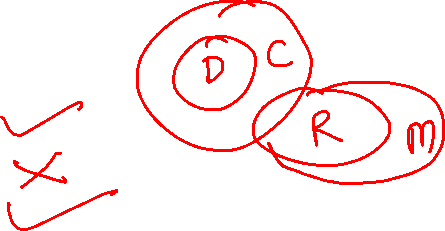 D C
R m
✓
✗
✓